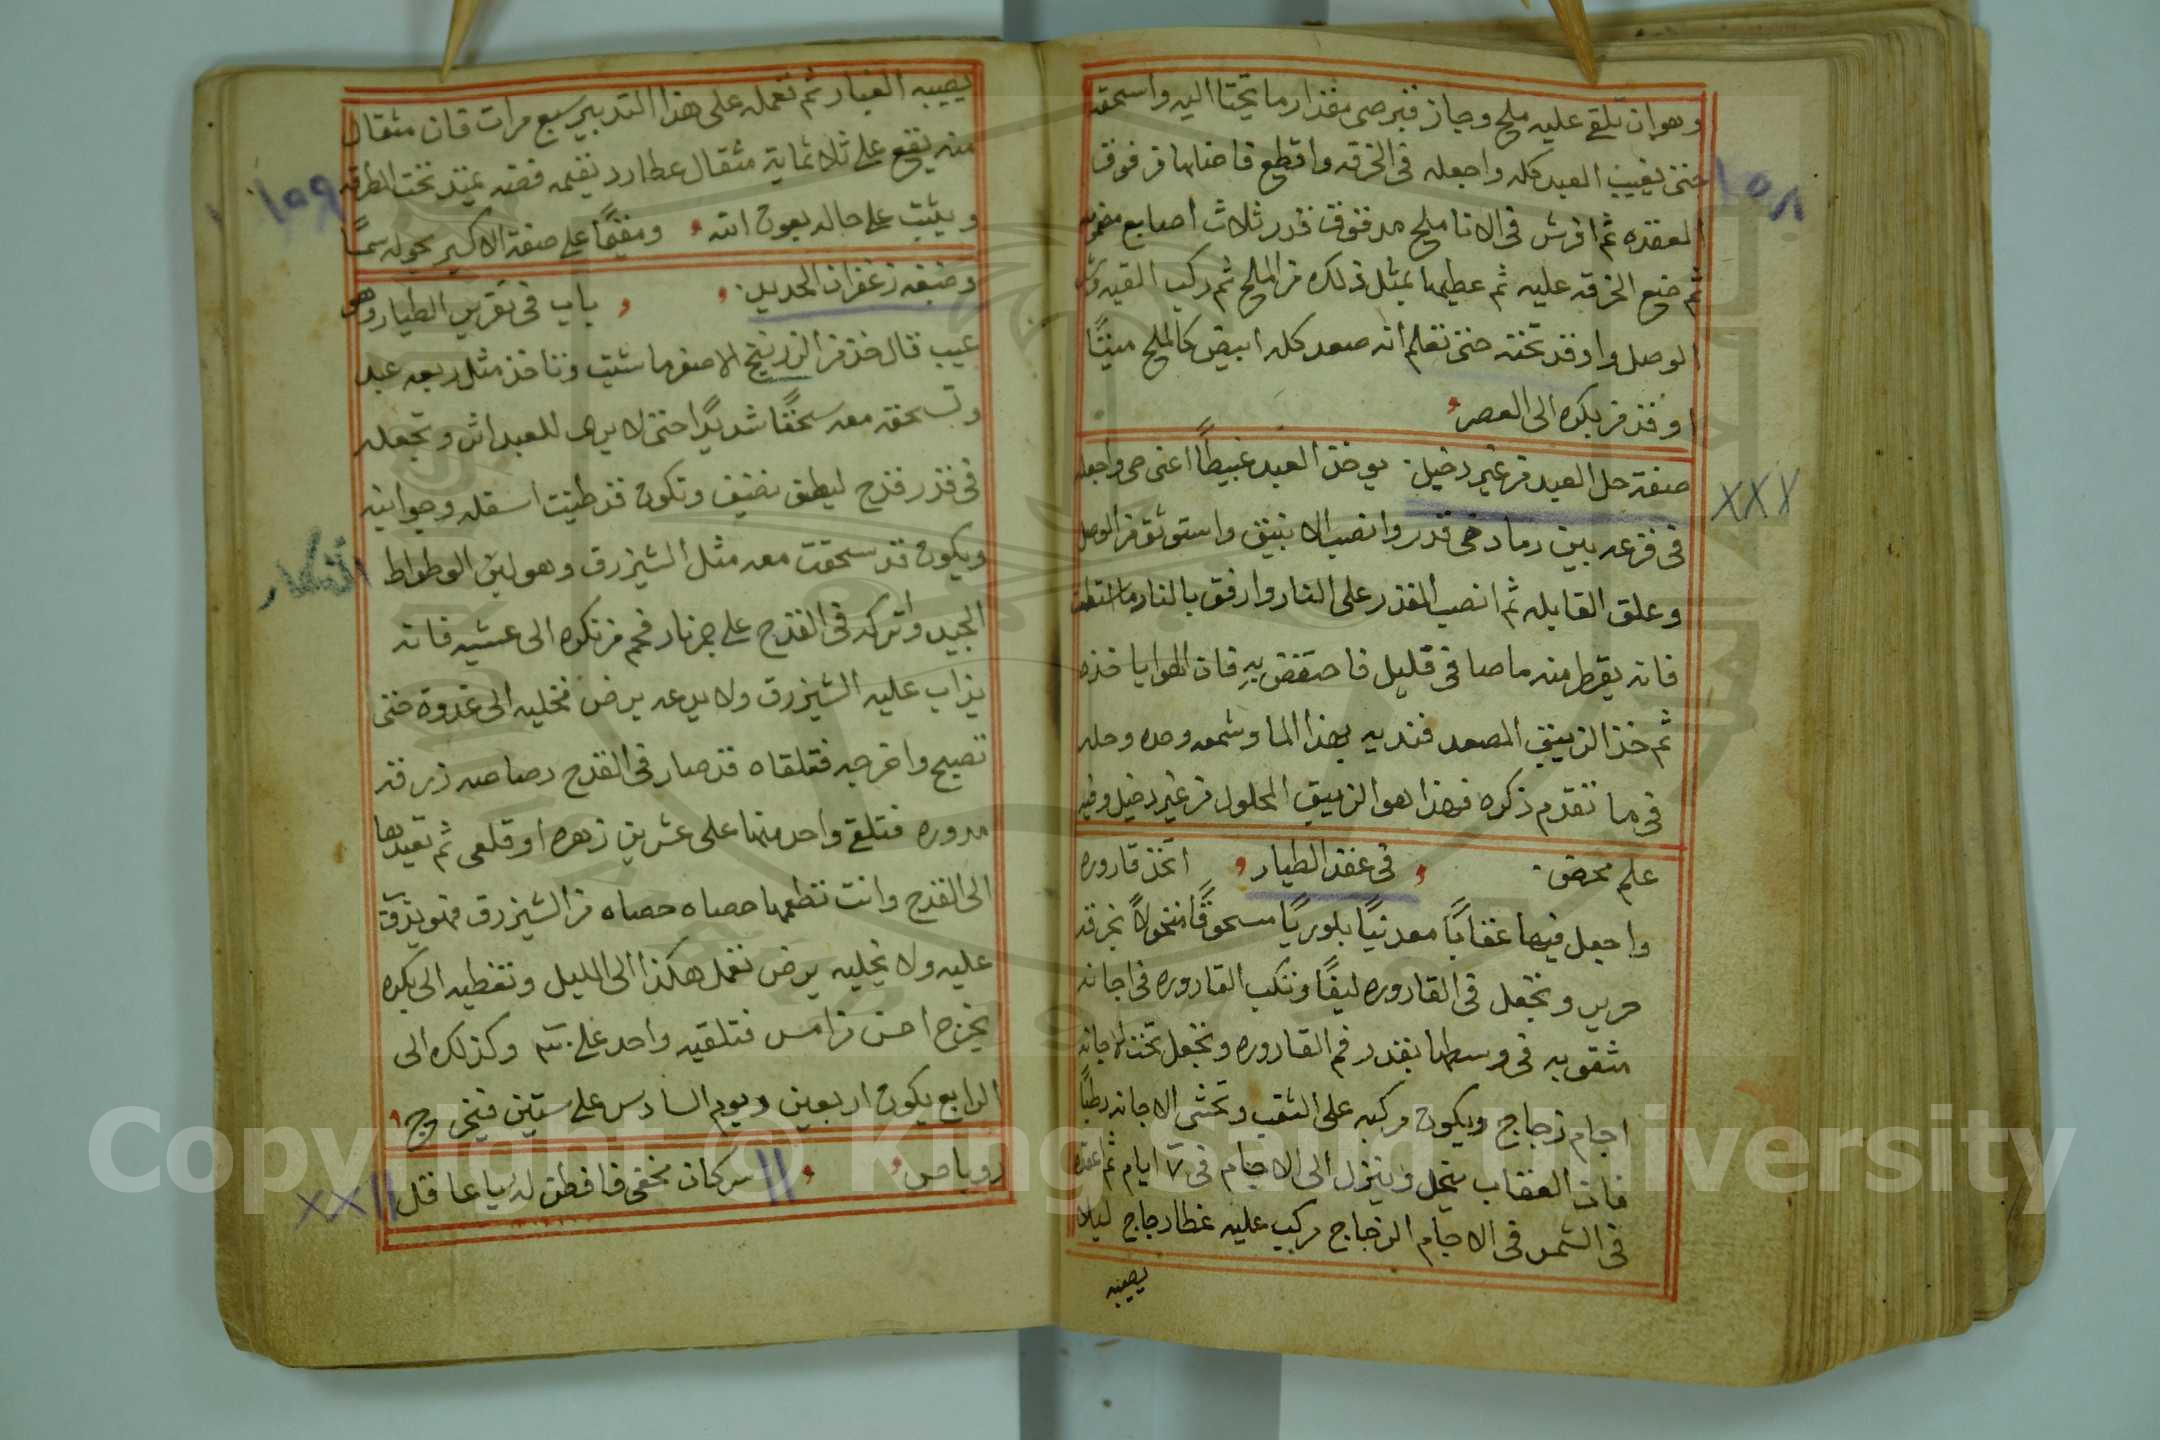 وهو ان تلقى عليه ملح وجاز قبرصى مقدار ما يحتا اليه واسحقه
حتى تغيب العبد كله واجعله فى الخرقه واقطع فاضلها من فوق
المعقده ثم افرش فى الانا ملح مدقوق قدر ثلاث اصابع
ثم ضع الخرقه عليه ثم عطيها بمثل ذلك من الملح ثم ركب القبه
الوصل واوقد تحته حتى تعلم انه صعد كله ابيض كالملح ميتًا
اوقد من بكره الى العصر
صفة حل العبد من غير دخيل يوخذ العبد غبيطًا اعنى حى واجعله
فى قرعه بين رماد فى قدر وانصب الانبيق واستوثق من الوصل
وعلق القابله ثم انصب القدر على النار وارفق بالنار ما استطعت
فانه يقطر منه ما صافى قليل فاحتفض به فان الهوا ياخذه
ثم خذ الزيبق المصعد فنديه بهذا الما وشمعه وحده وحله
فى ما تقدم ذكره فهذا هو الزيبق المحلول من غير دخيل وفيه
علم محض فى عقد الطيار اتخذ قاروره
واجعل فيها عقابًا معدنيًا بلوريًا مسحوقًا منخولًا بخرقه
حرير وتجعل فى القاروره ليفًا وتنكب القاروره فى اجانه
مثقوبه فى وسطها بقدر فم القاروره وتجعل تحت الاجانه
اجام زجاج ويكون مركبه على الثقب وتحشى الاجانه رطبًا
فان العقاب ينحل وينزل الى الاجام فى ٧ ايام ثم اعقده
فى الشمس فى الاجام الزجاج مركب عليه غطا زجاج ليلا
يصيبه
١٥٨
XXX
يصيبه الغبار ثم تعمله على هذا التدبير سبع مرات فان مثقال
منه يقع على ثلاثماية مثقال عطارد يقيمه فضه يمتد تحت المطرقه
ويثبت على حاله بعون الله ومقيمًا على صفة الاكسير بحوله سمًا
وصبغه زعفران الحديد باب فى تقريب الطيار وهو
عيب قال خذ من الزرنيخ الاصفر ما شيت وتاخذ مثل ربعه عبد
وتسحقه معه سحقًا شديدًا حتى لا يرى للعبد اثر وتجعله
فى قدر قدح ليطق نضيف وتكون قد طينت اسفله وجوانبه
ويكون قد سحقت معه مثل الشيزرق وهو لبن الوطواط
الجيد واتركه فى القدح على جمر نار فحم من بكره الى عشيه فانه
يذاب عليه الشيزرق ولا يدعه يرض فخليه الى غدوة حتى
تصبح واخرجه فتلقاه قد صار فى القدح رصاصه زرقه
مدوره فتلقى واحد منها على عشرين زهره او قلعى ثم تعيدها
الى القدح وانت تطعمها حصاه حصاه من الشيزرق فهو يذوق
عليه ولا يخليه يرض تفعل هكذا الى الليل وتغطيه الى بكره
يخرج احسن من امس فتلقيه واحد على ٣٠ وكذلك الى
الرابع يكون اربعين ويوم السادس على ستين فيخرج
روباص سر كان مخفى فافطن له يا عاقل
١٥٩
XX